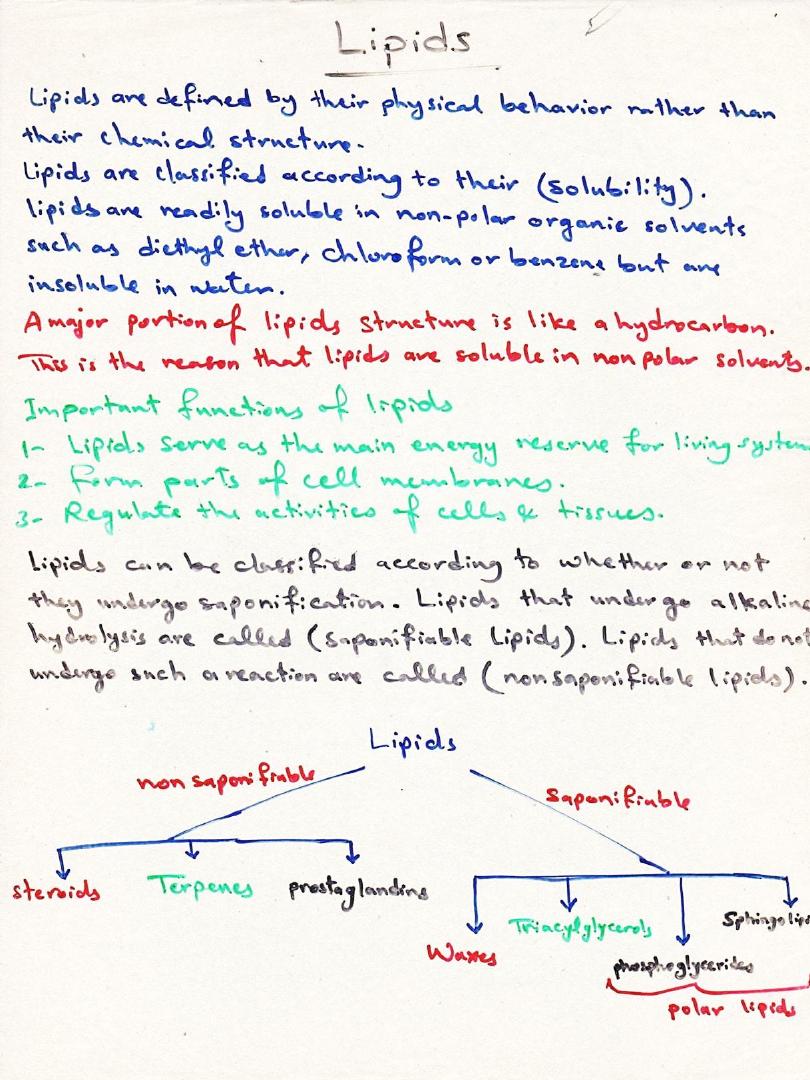 Lipids
Lipids are defined by their physical behavior rather than
their chemical structure.
Lipids are classified according to their (solubility).
lipids are readily soluble in non-polar organic solvents
such as diethyl ether, chloroform or benzene but are
insoluble in water.
A major portion of lipids structure is like a hydrocarbon.
This is the reason that lipids are soluble in non polar solvents.
Important functions of lipids
1- Lipids serve as the main energy reserve for living system
2- Form parts of cell membranes.
3- Regulate the activities of cells & tissues.
Lipids can be classified according to whether or not
they undergo saponification. Lipids that undergo alkaline
hydrolysis are called (saponifiable Lipids). Lipids that do not
undergo such a reaction are called (nonsaponifiable lipids).
Lipids
non saponifiable
saponifiable
steroids Terpenes prostaglandins
Waxes Triacylglycerols phosphoglycerides Sphingolip
polar lipids